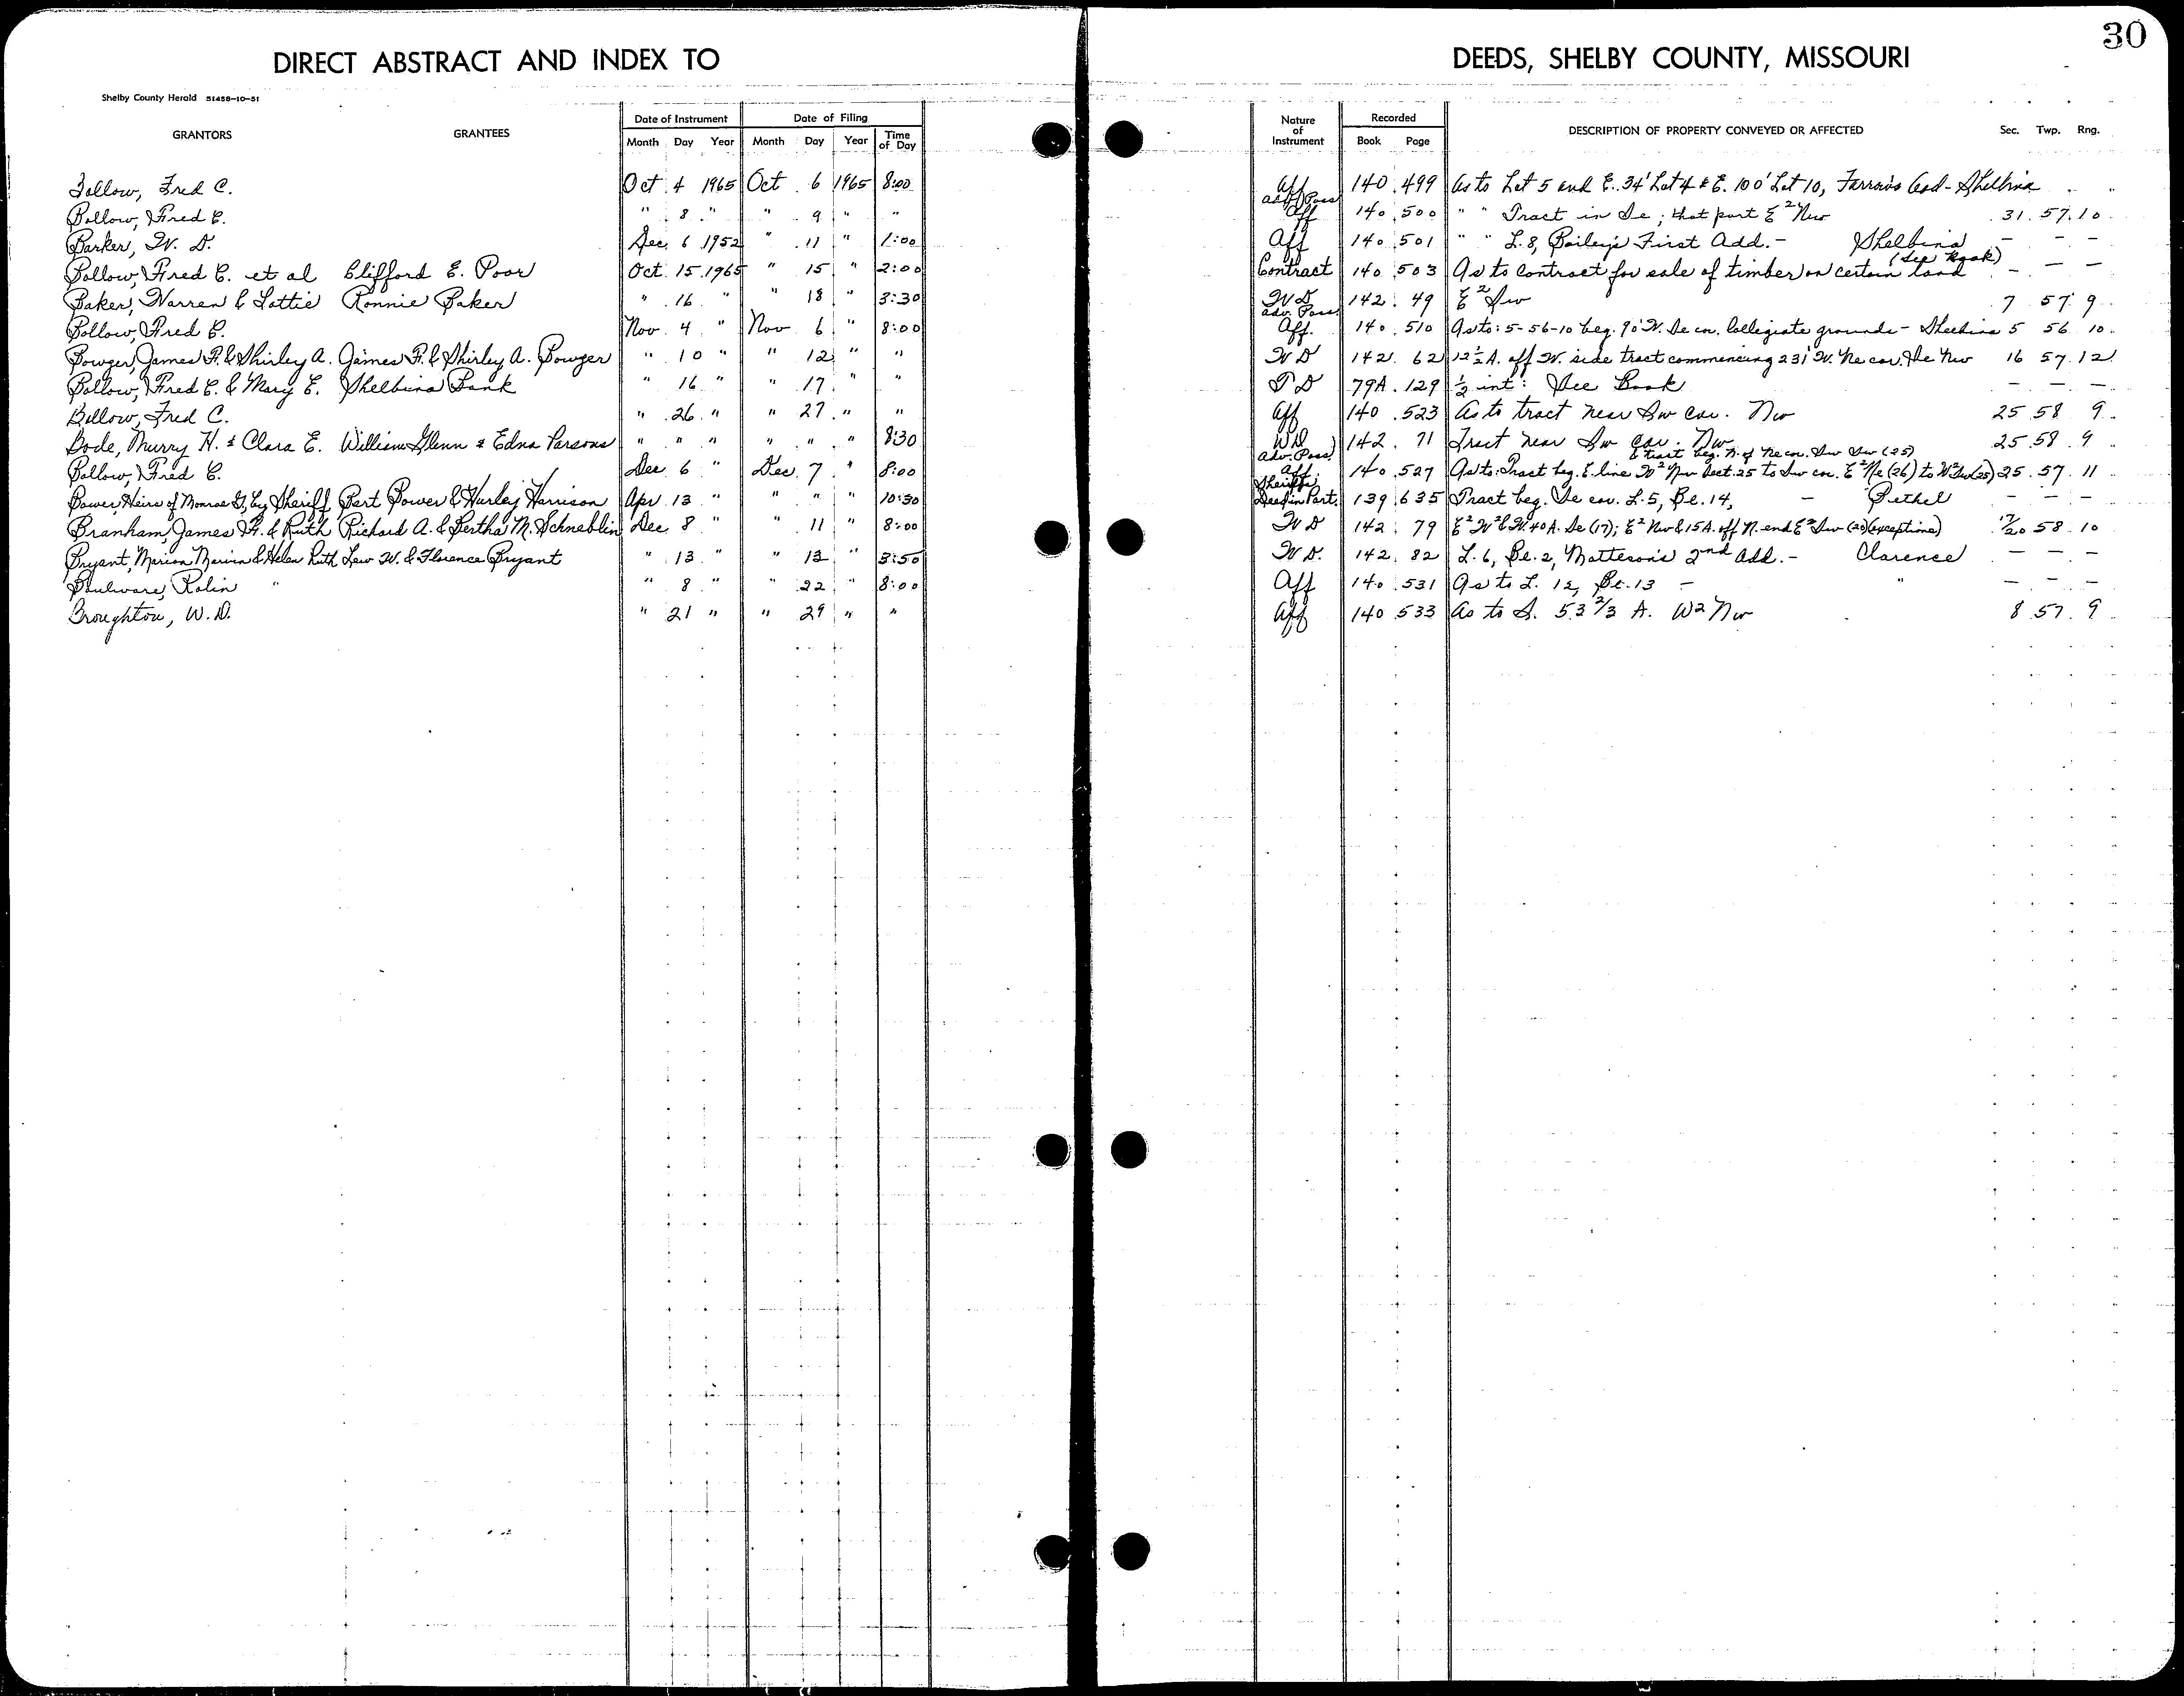 30
DIRECT ABSTRACT AND INDEX TO DEEDS, SHELBY COUNTY, MISSOURI
Shelby County Herald 51458-10-51
GRANTORS GRANTEES Date of Instrument Date of Filing Nature of Instrument Recorded DESCRIPTION OF PROPERTY CONVEYED OR AFFECTED Sec. Twp. Rng.
Month Day Year Month Day Year Time of Day Book Page
Bollow, Fred C. Oct 4 1965 Oct 6 1965 8:00 Aff 140 499 As to Lot 5 and E. 34' Lot 4 & E. 100' Lot 10, Farrows Add - Shelbina
Bollow, Fred C. " 8 " " 9 " " Adv. Poss Aff 140 500 " " Tract in Se; that part E² Nw 31 57 10
Barker, W. D. Dec 6 1952 " 11 " 1:00 Aff 140 501 " " L. 8, Bailey's First Add. - Shelbina - - -
Bollow, Fred C. et al Clifford E. Poor Oct. 15 1965 " 15 " 2:00 Contract 140 503 As to contract for sale of timber on certain land (See Book) - - -
Baker, Warren & Lottie Ronnie Baker " 16 " " 18 " 3:30 W D 142 49 E² Sw 7 57 9
Bollow, Fred C. Nov 4 " Nov 6 " 8:00 Adv. Poss Aff. 140 510 As to: 5-56-10 beg. 90' W. Se cor. Collegiate grounds - Shelbina 5 56 10
Bowger, James F. & Shirley A. James F. & Shirley A. Bowger " 10 " " 12 " " W D 142 62 12½ A. off W. side tract commencing 231' W. Ne cor. Se Nw 16 57 12
Bollow, Fred C. & Mary E. Shelbina Bank " 16 " " 17 " " T D 79A 129 ½ int: See Book - - -
Bollow, Fred C. " 26 " " 27 " " Aff 140 523 As to tract near Sw cor. Nw 25 58 9
Bode, Murry H. & Clara E. William Glenn & Edna Parsons " " " " " " 8:30 WD 142 71 Tract near Sw cor. Nw 25 58 9
Bollow, Fred C. Dec 6 " Dec. 7 " 8:00 Adv. Poss Aff. 140 527 As to: Tract beg. E. line W² Nw Sect. 25 to Sw cor. E² Ne (26) to W² Sw (25) & tract beg. N. of Ne cor. Sw Sw (25) 25 57 11
Bower, Heirs of Monroe G, by Sheriff Bart Bower & Hurley Harrison Apr 13 " " " " 10:30 Sheriff's Deed in Part. 139 635 Tract beg. Se cor. L. 5, Bl. 14, - Bethel - - -
Branham, James H. & Ruth Richard A. & Bertha M. Schneblin Dec 8 " " 11 " 8:00 W D 142 79 E² W² & W. 40 A. Se (17); E² Nw & 15 A. off N. end E² Sw (20) (exceptions) 17/20 58 10
Bryant, Marion Marvin & Helen Ruth Lew W. & Florence Bryant " 13 " " 13 " 3:50 W D. 142 82 L. 6, Bl. 2, Matteson's 2nd Add. - Clarence - - -
Boulware, Rolin " 8 " " 22 " 8:00 Aff 140 531 As to L. 12, Bl. 13 - " - - -
Broughton, W. D. " 21 " " 29 " " Aff 140 533 As to S. 53 2/3 A. W2 Nw 8 57 9